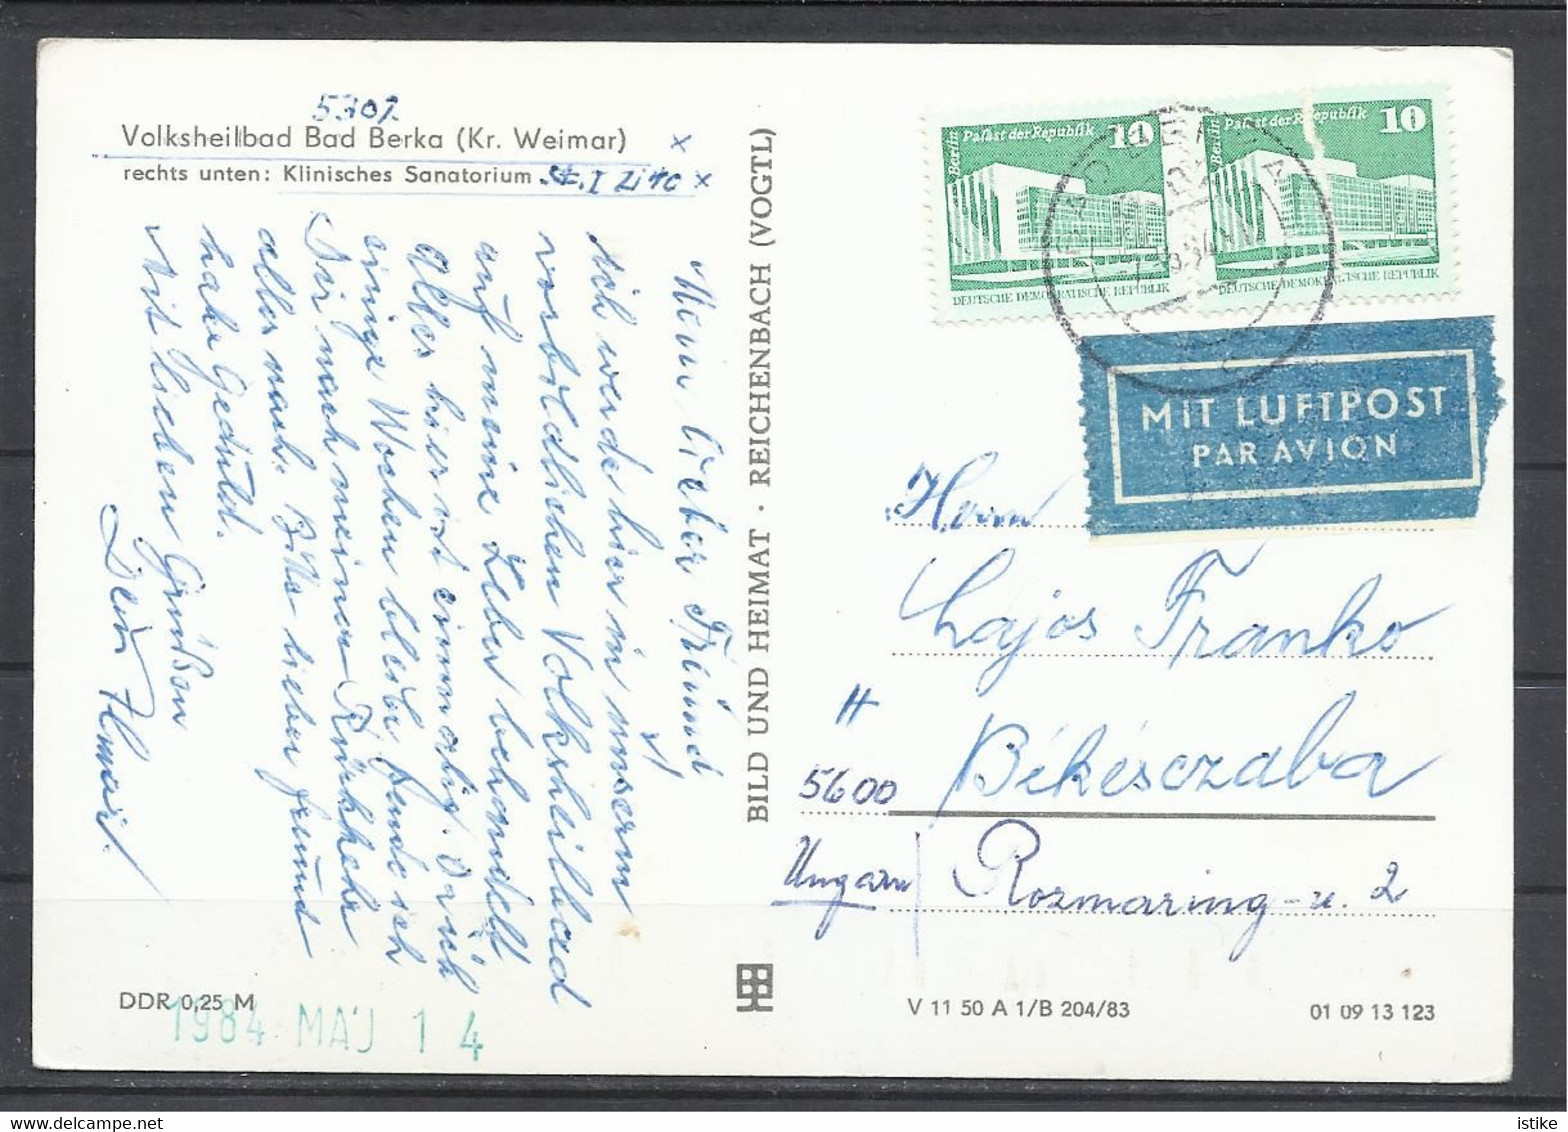 5302
Volksheilbad Bad Berka (Kr. Weimar) x
rechts unten: Klinisches Sanatorium St. I Zi 40 x
Mein lieber Freund
Ich werde hier in unserm
vorbildlichen Volksheilbad
auf meine Leber behandelt
Alles hier ist einmalig.
einige Wochen bleibe, sende ich
Dir nach meiner Rückkehr
alles nach. Bitte lieber Freund
habe Geduld.
Mit lieben Grüßen
Dein
DDR 0,25 M
1984 MÁJ 14
BILD UND HEIMAT · REICHENBACH (VOGTL)
Berlin Palast der Republik 10
DEUTSCHE DEMOKRATISCHE REPUBLIK
Berlin Palast der Republik 10
DEUTSCHE DEMOKRATISCHE REPUBLIK
MIT LUFTPOST
PAR AVION
Herrn
Lajos Franko
H
5600 Békésczaba
Ungarn Rozmaring-u. 2
V 11 50 A 1/B 204/83
01 09 13 123